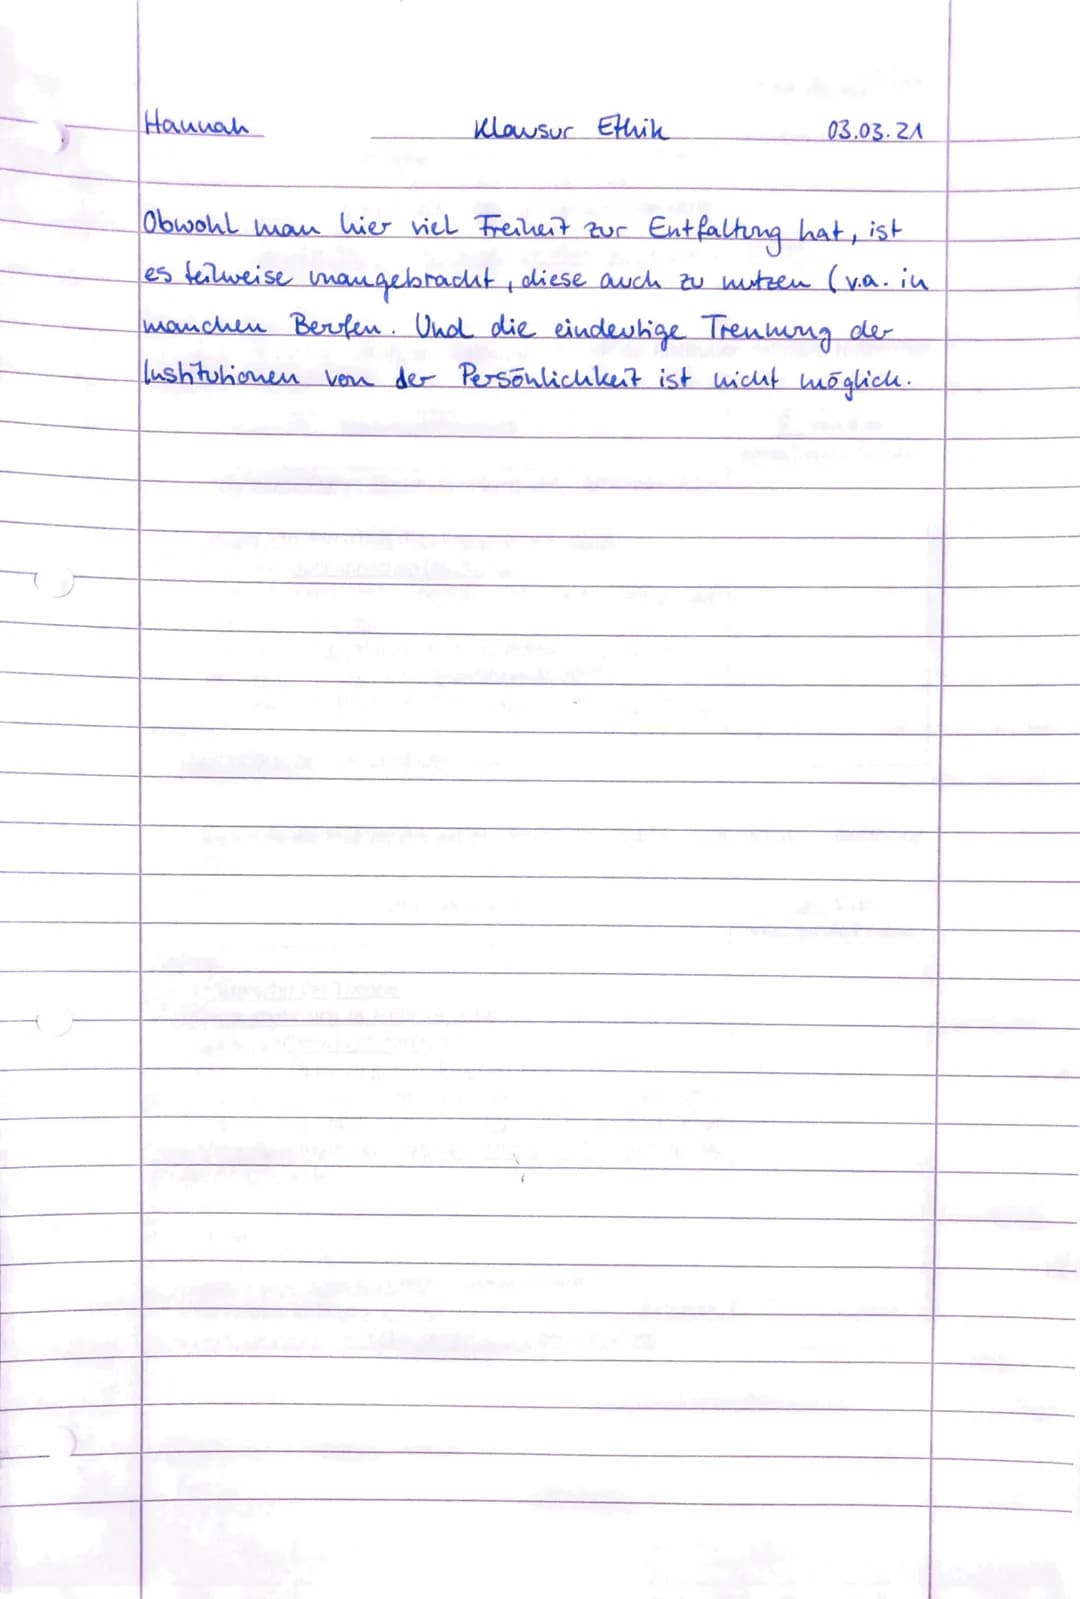 Hannah Klausur Ethik 03.03.21
Obwohl man hier viel Freiheit zur Entfaltung hat, ist
es teilweise unangebracht, diese auch zu nutzen (v.a. in
manchen Berufen. Und die eindeutige Trennung der
Institutionen von der Persönlichkeit ist nicht möglich.